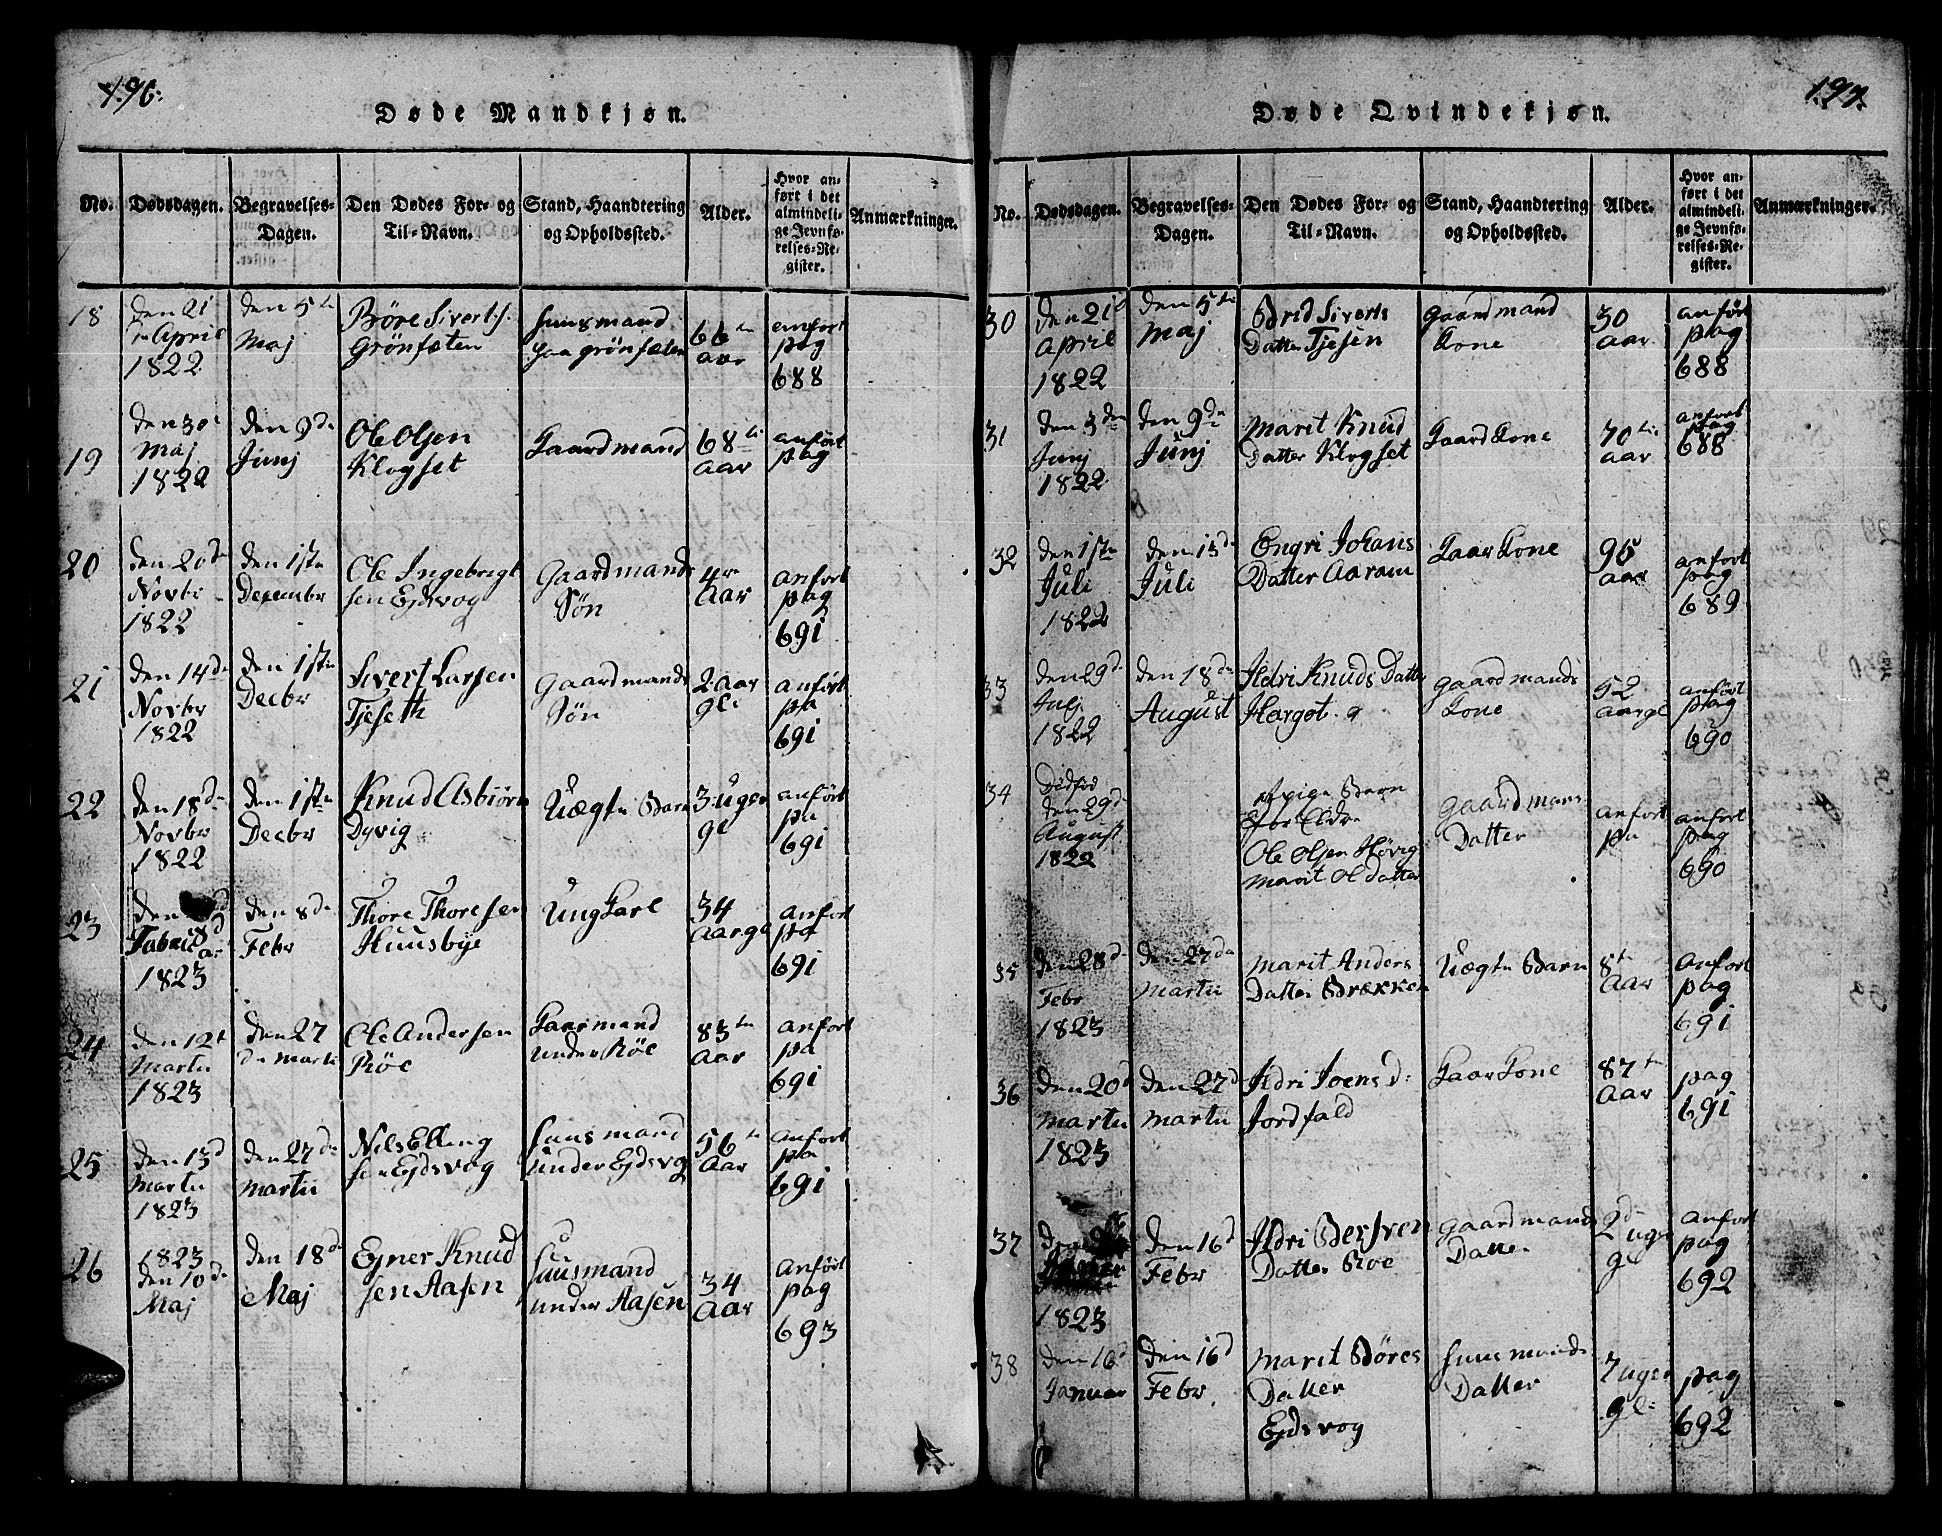 196.
Døde Mandkjøn.
No.
Dødsdagen.
Begravelses-
Dagen.
Den Dødes For- og
Til-Navn.
Stand, Haandtering
og Opholdssted.
Alder.
Hvor an-
ført i det
almindeli-
ge Jevnfø-
relses-Re-
gister.
Anmærkninger.
18
den 21
April
1822
den 5te
Maj
Böre Siverts.
Grönfæten
huusmand
paa grönfæten
66te
aar
anfört
pag
688
19
den 30
Maj
1822
den 9de
Junj
Ole Olsen
Klogset
Gaardmand
68te
aar
anfört
pag
20
den 20de
Novbr
1822
den 1ste
Decembr
Ole Ingebrigt
sen Ejdsvog
Gaardmands
Søn
4r
Aar
anfort
pag
691
21
den 14de
Novbr
1822
den 1ste
Decbr
Sivert Larsen
Tjeseth
Gaardmands
Søn
2 aar
gl:
anfört
pa
691
22
den 18de
Novbr
1822
den 1ste
Decbr
Knud Asbiörn
Dyvig
Uægte Barn
3 uger
gl
anfört
pa
691
23
den
1823
den 8de
Febr
Thore Thoresen
Huusbye
Ung Karl
34
Aar gl
anfort
pa
691
24
den 12t
Martii
1823
den 27
de martii
Ole Andersen
Röe
Kaarmand
under Röe
83te
Aar
anfort
pa
691
25
den 13d
Martii
1823
den 27de
Martii
Nils Elling
sen Ejdsvog
huusmand
under Ejdsvog
56te
Aar
anfort
pa
691
26
1823
den 10de
Maj
den 18de
Maj
Ejner Knud
sen Aasen
huusmand
under Aasen
34
Aar
anfört
pag
693
197.
Døde Qvindekjøn.
No.
Dødsdagen.
Begravelses-
Dagen.
Den Dødes For- og
Til-Navn.
Stand, Haandtering
og Opholdssted.
Alder.
Hvor an-
ført i det
almindeli-
ge Jevnfø-
relses-Re-
gister.
Anmærkninger.
30
den 21d
April
1822
den 5te
Maj
Brid Siverts
Datter Tjesen
Gaardmand
Kone
30
aar
anfört
pag
688
31
den 3de
Junj
1822
den 9de
Junj
Marit Knud
Datter Klogset
Gaard Kone
70te
aar
anfort
pag
688
32
den 1ste
Juli
1822
den 15de
Juli
Engri Johans
Datter Aaram
Kaar Kone
95
aar
anfort
pag
689
33
den 29d
Julj
1822
den 18de
August
Ildri Knuds Datter
Hargot
gaardmands
Kone
52
aar gl
anfört
pag
690
34
Dødfød
den 29d
August
1822
Barn
Ole Olsen Hövig
Marit Ol Datter
Gaardmans
Datter
anfort
pa
anfort
pag
690
35
den 28d
Febr
1823
den 27de
Martii
Marit Anders
Datter Brekken
Uægte Barn
8te
Aar
anfort
pag
691
36
den 20d
Martii
1823
den 27d
Martii
Ildri Joens d:
Jordfald
Kaar Kone
87te
Aar
pag
691
37
1823
den 16d
Febr
Ildri Bersven
Datter Roe
Gaardmands
Datter
2de uger
gl
anfort
pag
692
38
den 16d
Januar
den 16d
Febr
Marit Böres
Datter
Ejdsvog
huusmands
Datter
7 uger
gl:
pag
692